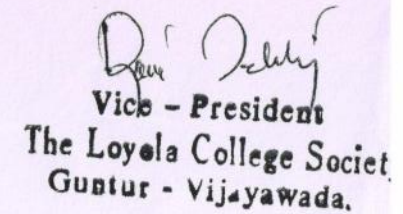 Vice - President
The Loyola College Societ
Guntur - Vijayawada.